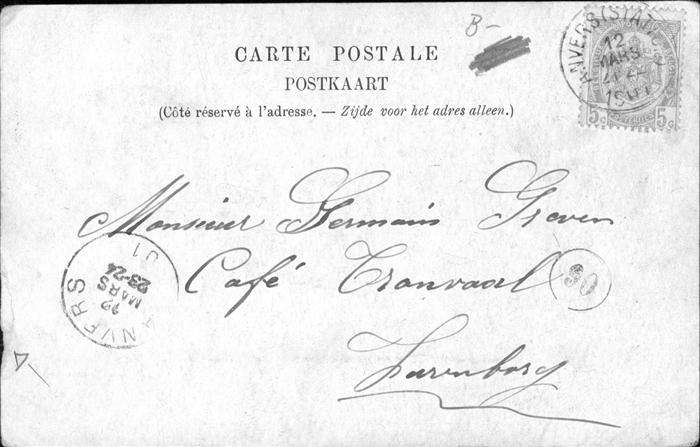 B-
CARTE POSTALE
POSTKAART
(Côté réservé à l'adresse. — Zijde voor het adres alleen.)
ANVERS (STATION)
12
MARS
1901
5c 5c
Monsieur Germain Greven
Café Transvaal
Zurenborg
ANVERS
12
MARS
23-24
01
30